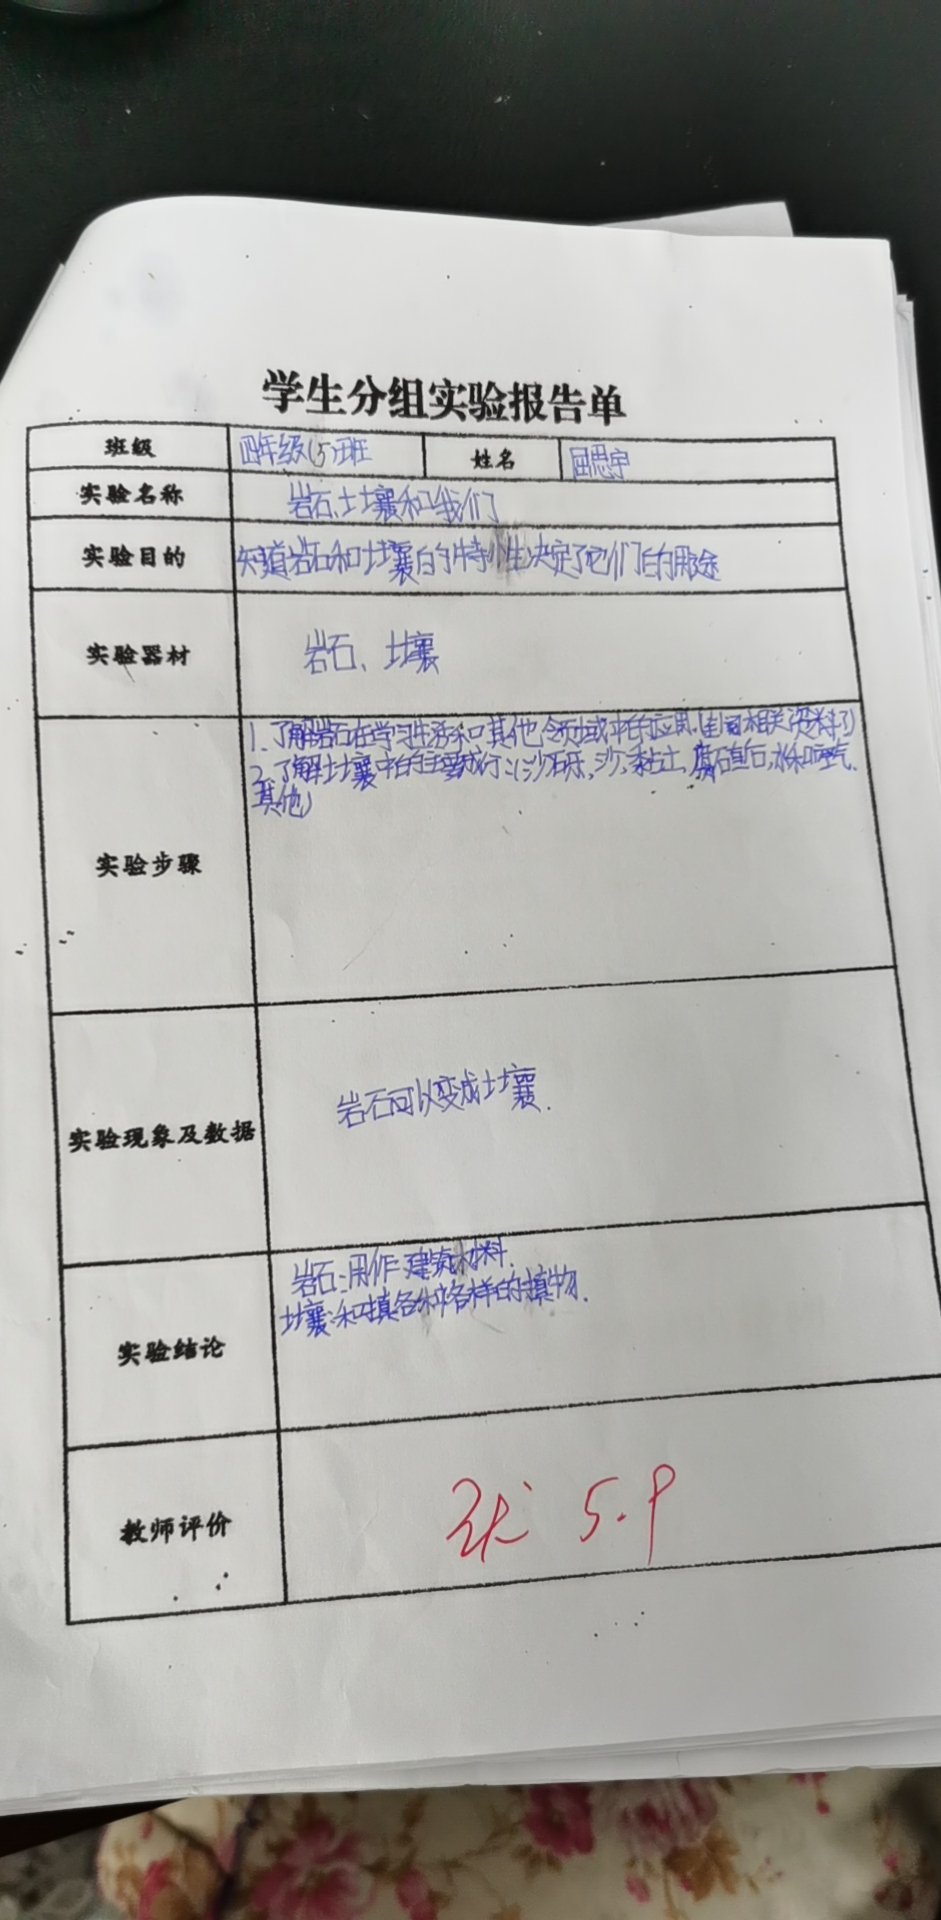 学生分组实验报告单
班级 四年级(5)班 姓名 屈思宇
实验名称 岩石、土壤和我们
实验目的 知道岩石和土壤的特性决定了它们的用途
实验器材 岩石、土壤
1.了解岩石在学习生活和其他领域中的应用.(查阅相关资料)
2.了解土壤中的主要成分:(沙砾,沙,黏土,腐殖质,水和空气.
其他)
实验步骤
岩石可以变成土壤.
实验现象及数据
岩石:用作建筑材料.
土壤:种植各种各样的植物.
实验结论
教师评价 5.9